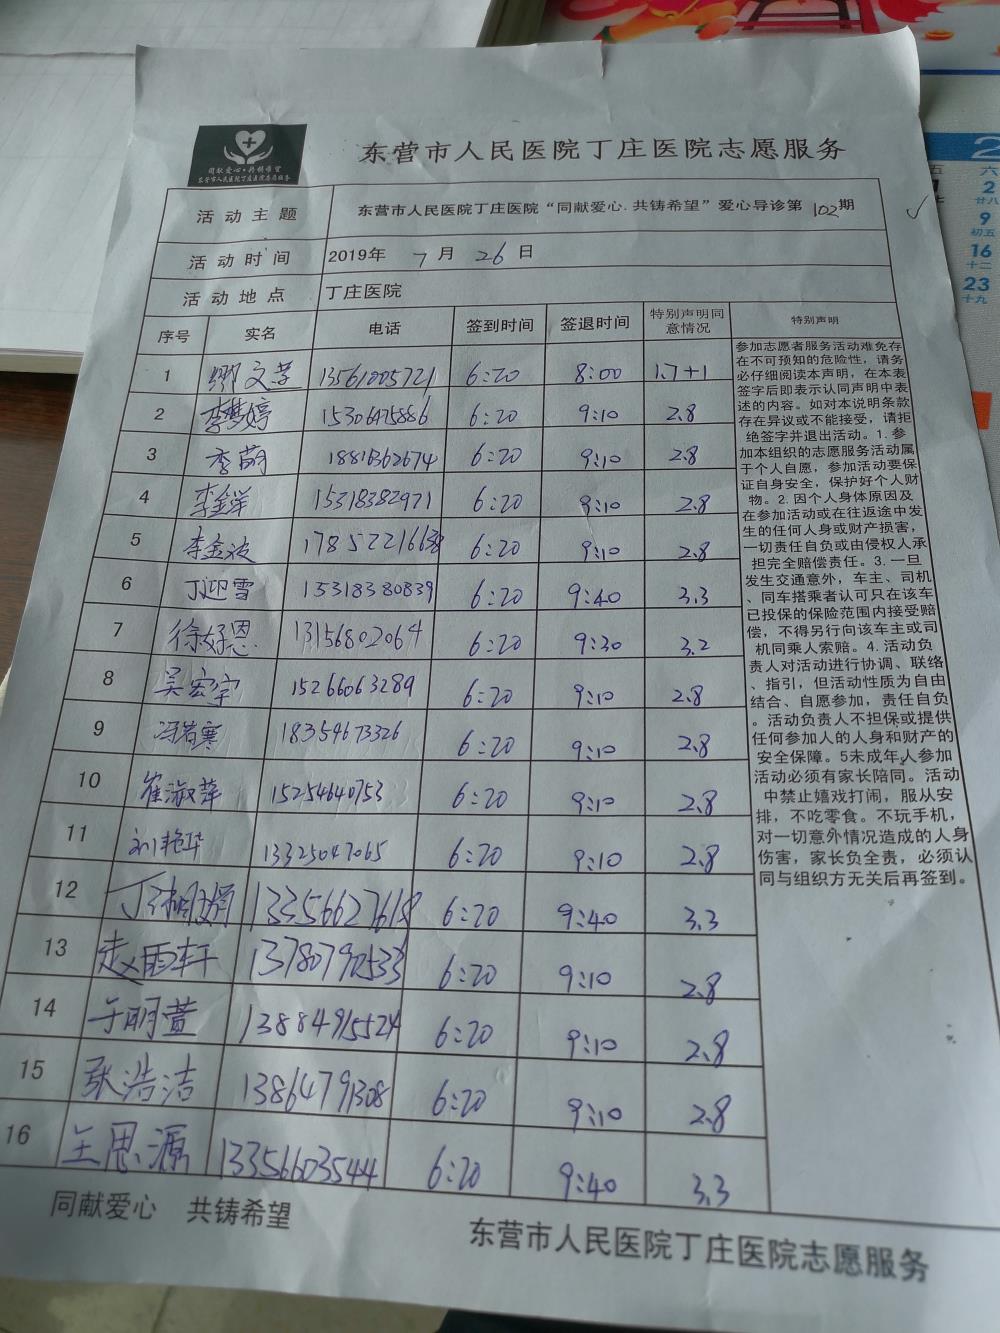 同献爱心·共铸希望
东营市人民医院丁庄医院志愿服务
东营市人民医院丁庄医院志愿服务
活动主题 东营市人民医院丁庄医院“同献爱心.共铸希望”爱心导诊第102期
活动时间 2019年 7月 26日
活动地点 丁庄医院
序号 实名 电话 签到时间 签退时间 特别声明同意情况 特别声明
1 缪文芳 13561005721 6:20 8:00 1.7+1
2 李梦婷 15306475886 6:20 9:10 2.8
3 李萌 18813662674 6:20 9:10 2.8
4 李金洋 15318382971 6:20 9:10 2.8
5 李金波 17852216638 6:20 9:10 2.8
6 丁迎雪 15318380839 6:20 9:40 3.3
7 徐好恩 13156802064 6:20 9:30 3.2
8 吴宏宇 15266063289 6:20 9:10 2.8
9 冯若寒 18354673326 6:20 9:10 2.8
10 崔淑萍 15254640753 6:20 9:10 2.8
11 刘艳华 13325047065 6:20 9:10 2.8
12 13356627618 6:20 9:40 3.3
13 赵雨轩 13780790533 6:20 9:10 2.8
14 于明萱 13884915524 6:20 9:10 2.8
15 张浩洁 13864791308 6:20 9:10 2.8
16 王思源 13356603544 6:20 9:40 3.3
参加志愿者服务活动难免存
在不可预知的危险性，请务
必仔细阅读本声明，在本表
签字后即表示认同声明中表
述的内容。如对本说明条款
存在异议或不能接受，请拒
绝签字并退出活动。1.参
加本组织的志愿服务活动属
于个人自愿，参加活动要保
证自身安全，保护好个人财
物。2.因个人身体原因及
在参加活动或在往返途中发
生的任何人身或财产损害，
一切责任自负或由侵权人承
担完全赔偿责任。3.一旦
发生交通意外，车主、司机
、同车搭乘者认可只在该车
已投保的保险范围内接受赔
偿，不得另行向该车主或司
机同乘人索赔。4.活动负
责人对活动进行协调、联络
、指引，但活动性质为自由
结合、自愿参加，责任自负
。活动负责人不担保或提供
任何参加人的人身和财产的
安全保障。5未成年人参加
活动必须有家长陪同。活动
中禁止嬉戏打闹，服从安
排，不吃零食。不玩手机，
对一切意外情况造成的人身
伤害，家长负全责，必须认
同与组织方无关后再签到。
同献爱心 共铸希望
东营市人民医院丁庄医院志愿服务
2
五 六
2
廿八
9
初五
16
十二
23
十九